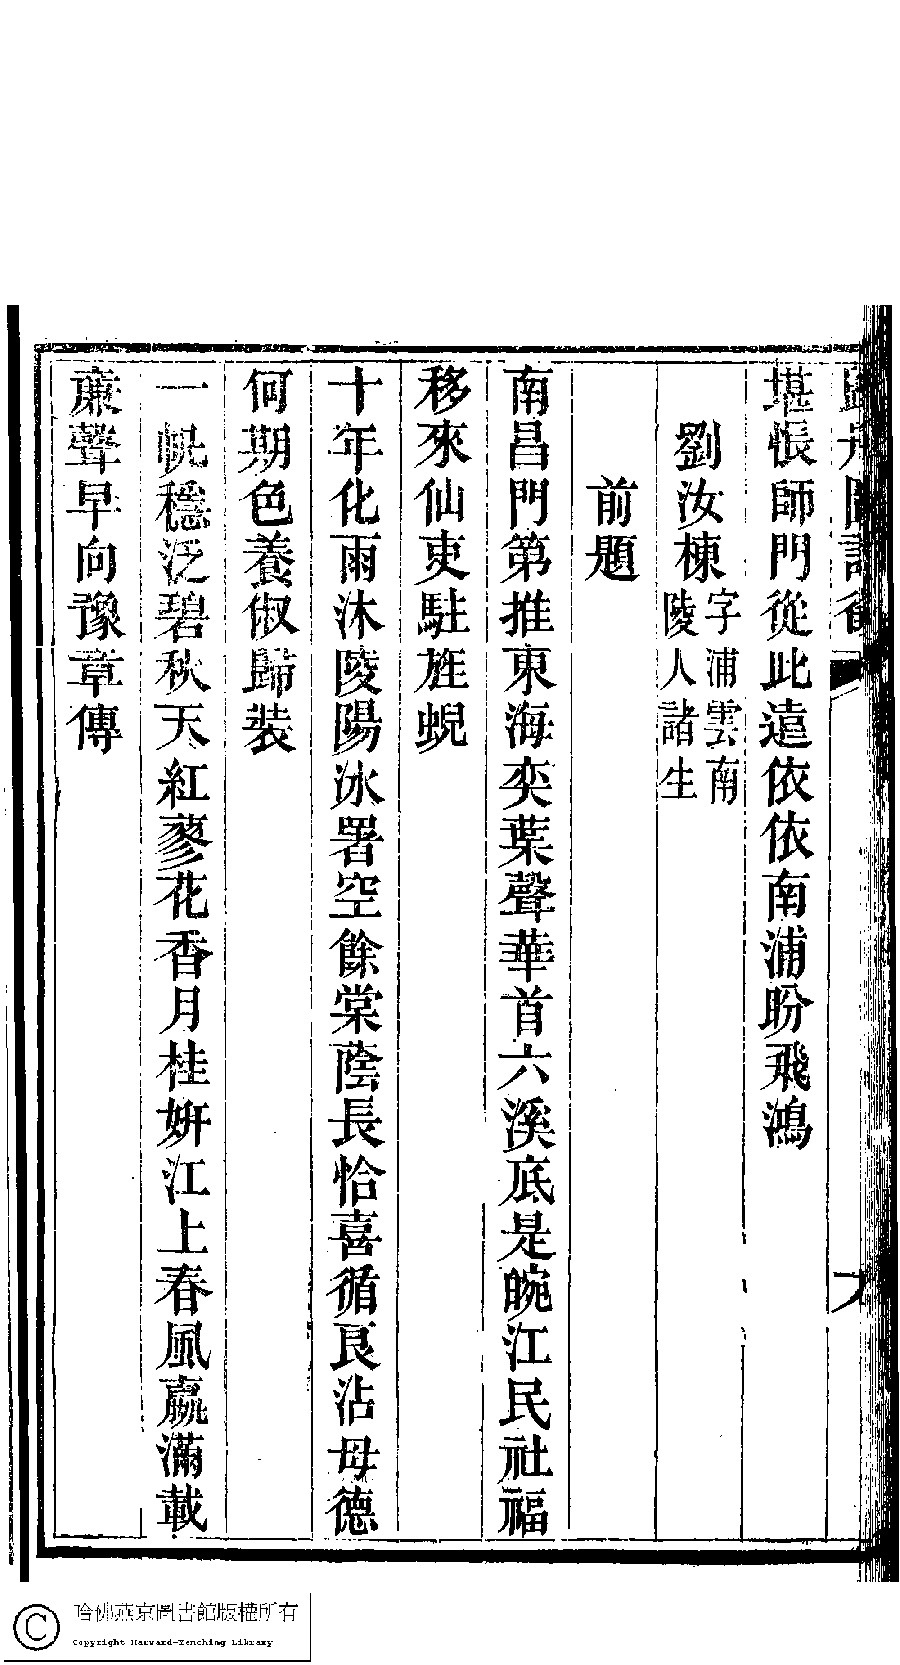 堪悵師門從此遠依依南浦盼飛鴻
劉汝棟字浦雲南
陵人諸生
前題
南昌門第推東海奕葉聲華首六溪底是皖江民社福
移來仙吏駐旌蜺
十年化雨沐陵陽冰署空餘棠蔭長恰喜循良沾母德
何期色養俶歸裝
一帆穩泛碧秋天紅蓼花香月桂妍江上春風嬴滿載
廉聲早向豫章傳
哈佛燕京圖書館版權所有
Copyright Harvard-Yenching Library